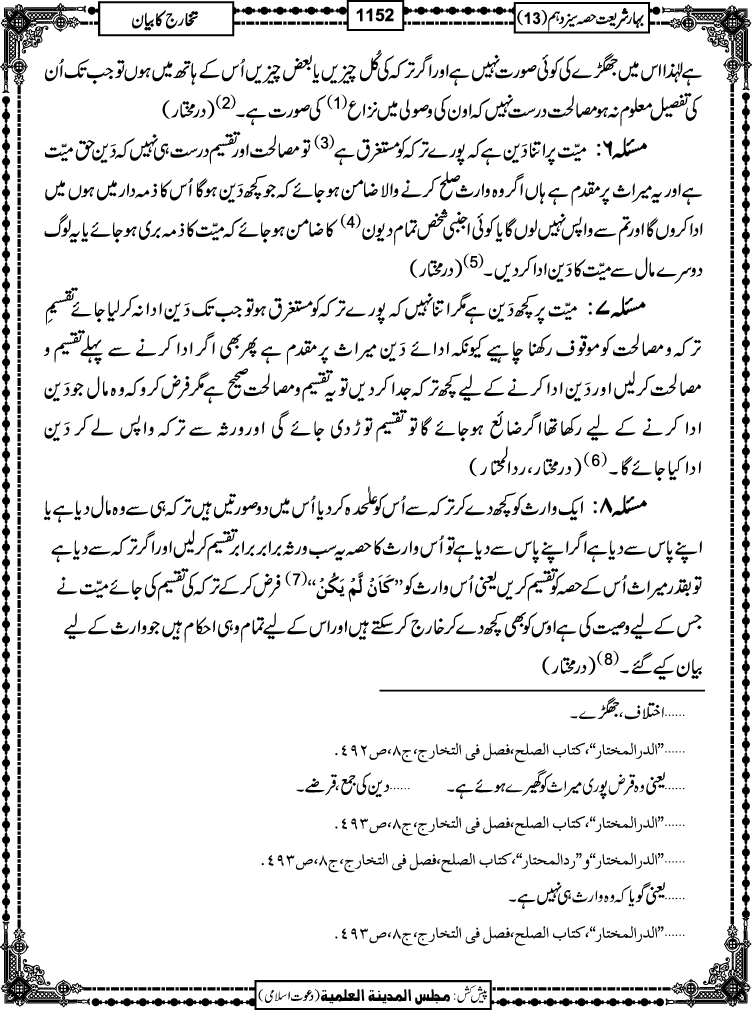 بہار شریعت حصہ سیزدہم (13)
1152
تخارج کا بیان
ہے لہٰذا اس میں جھگڑے کی کوئی صورت نہیں ہے اور اگر ترکہ کی کُل چیزیں یا بعض چیزیں اُس کے ہاتھ میں ہوں تو جب تک اُن
کی تفصیل معلوم نہ ہو مصالحت درست نہیں کہ اون کی وصولی میں نزاع (1) کی صورت ہے۔(2) (درمختار)
مسئلہ ۶: میّت پر اتنا دَین ہے کہ پورے ترکہ کو مستغرق ہے(3) تو مصالحت اور تقسیم درست ہی نہیں کہ دَین حق میّت
ہے اور یہ میراث پر مقدم ہے ہاں اگر وہ وارث صلح کرنے والا ضامن ہو جائے کہ جو کچھ دَین ہوگا اُس کا ذمہ دار میں ہوں میں
ادا کروں گا اور تم سے واپس نہیں لوں گا یا کوئی اجنبی شخص تمام دیون (4) کا ضامن ہو جائے کہ میّت کا ذمہ بری ہو جائے یا یہ لوگ
دوسرے مال سے میّت کا دَین ادا کر دیں۔(5) (درمختار)
مسئلہ ۷: میّت پر کچھ دَین ہے مگر اتنا نہیں کہ پورے ترکہ کو مستغرق ہو تو جب تک دَین ادا نہ کر لیا جائے تقسیمِ
ترکہ و مصالحت کو موقوف رکھنا چاہیے کیونکہ ادائے دَین میراث پر مقدم ہے پھر بھی اگر ادا کرنے سے پہلے تقسیم و
مصالحت کر لیں اور دَین ادا کرنے کے لیے کچھ ترکہ جدا کر دیں تو یہ تقسیم و مصالحت صحیح ہے مگر فرض کرو کہ وہ مال جو دَین
ادا کرنے کے لیے رکھا تھا اگر ضائع ہو جائے گا تو تقسیم توڑ دی جائے گی اور ورثہ سے ترکہ واپس لے کر دَین
ادا کیا جائے گا۔(6) (درمختار، ردالمحتار)
مسئلہ ۸: ایک وارث کو کچھ دے کر ترکہ سے اُس کو علٰحدہ کر دیا اُس میں دو صورتیں ہیں ترکہ ہی سے وہ مال دیا ہے یا
اپنے پاس سے دیا ہے اگر اپنے پاس سے دیا ہے تو اُس وارث کا حصہ یہ سب ورثہ برابر برابر تقسیم کر لیں اور اگر ترکہ سے دیا ہے
تو بقدر میراث اُس کے حصہ کو تقسیم کریں یعنی اُس وارث کو ”کَاَنْ لَّمْ یَکُنْ“(7) فرض کر کے ترکہ کی تقسیم کی جائے میّت نے
جس کے لیے وصیت کی ہے اوس کو بھی کچھ دے کر خارج کر سکتے ہیں اور اس کے لیے تمام وہی احکام ہیں جو وارث کے لیے
بیان کیے گئے۔(8) (درمختار)
......اختلاف، جھگڑے۔
......”الدرالمختار“،کتاب الصلح،فصل فی التخارج،ج۸،ص۴۹۲.
......یعنی وہ قرض پوری میراث کو گھیرے ہوئے ہے۔ ......دین کی جمع، قرضے۔
......”الدرالمختار“،کتاب الصلح،فصل فی التخارج،ج۸،ص۴۹۳.
......”الدرالمختار“و”ردالمحتار“،کتاب الصلح،فصل فی التخارج،ج۸،ص۴۹۳.
......یعنی گویا کہ وہ وارث ہی نہیں ہے۔
......”الدرالمختار“،کتاب الصلح،فصل فی التخارج،ج۸،ص۴۹۳.
پیش کش: مجلس المدینۃ العلمیۃ (دعوت اسلامی)